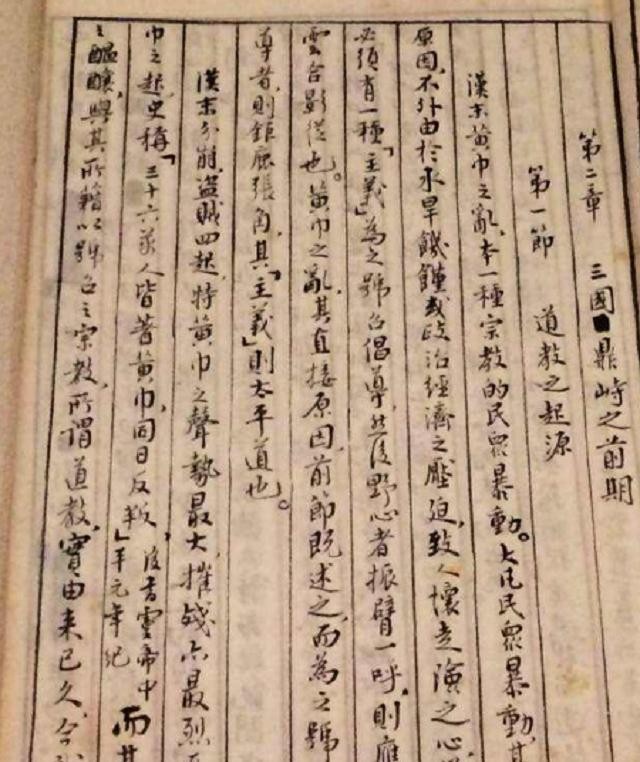 第二章 三國鼎峙之前期
第一節 道教之起源
漢末黃巾之亂,本一種宗教的民眾暴動。大凡民眾暴動,其
原因,不外由於水旱饑饉或政治經濟之壓迫,致人懷走險之心,
必須有一種「主義」為之號召倡導,然後野心者振臂一呼,則應
雲合影從也。黃巾之亂,其直接原因,前節既述之,而為之號
導者,則鉅鹿張角,其「主義」則太平道也。
漢末分崩,盜賊四起,特黃巾之聲勢最大,摧殘亦最烈,
巾之起,史稱「三十六萬人皆著黃巾,同日反叛」後書靈帝中平元年紀 而其
之醞釀,與其所藉以號召之宗教,所謂道教,實由來已久,今